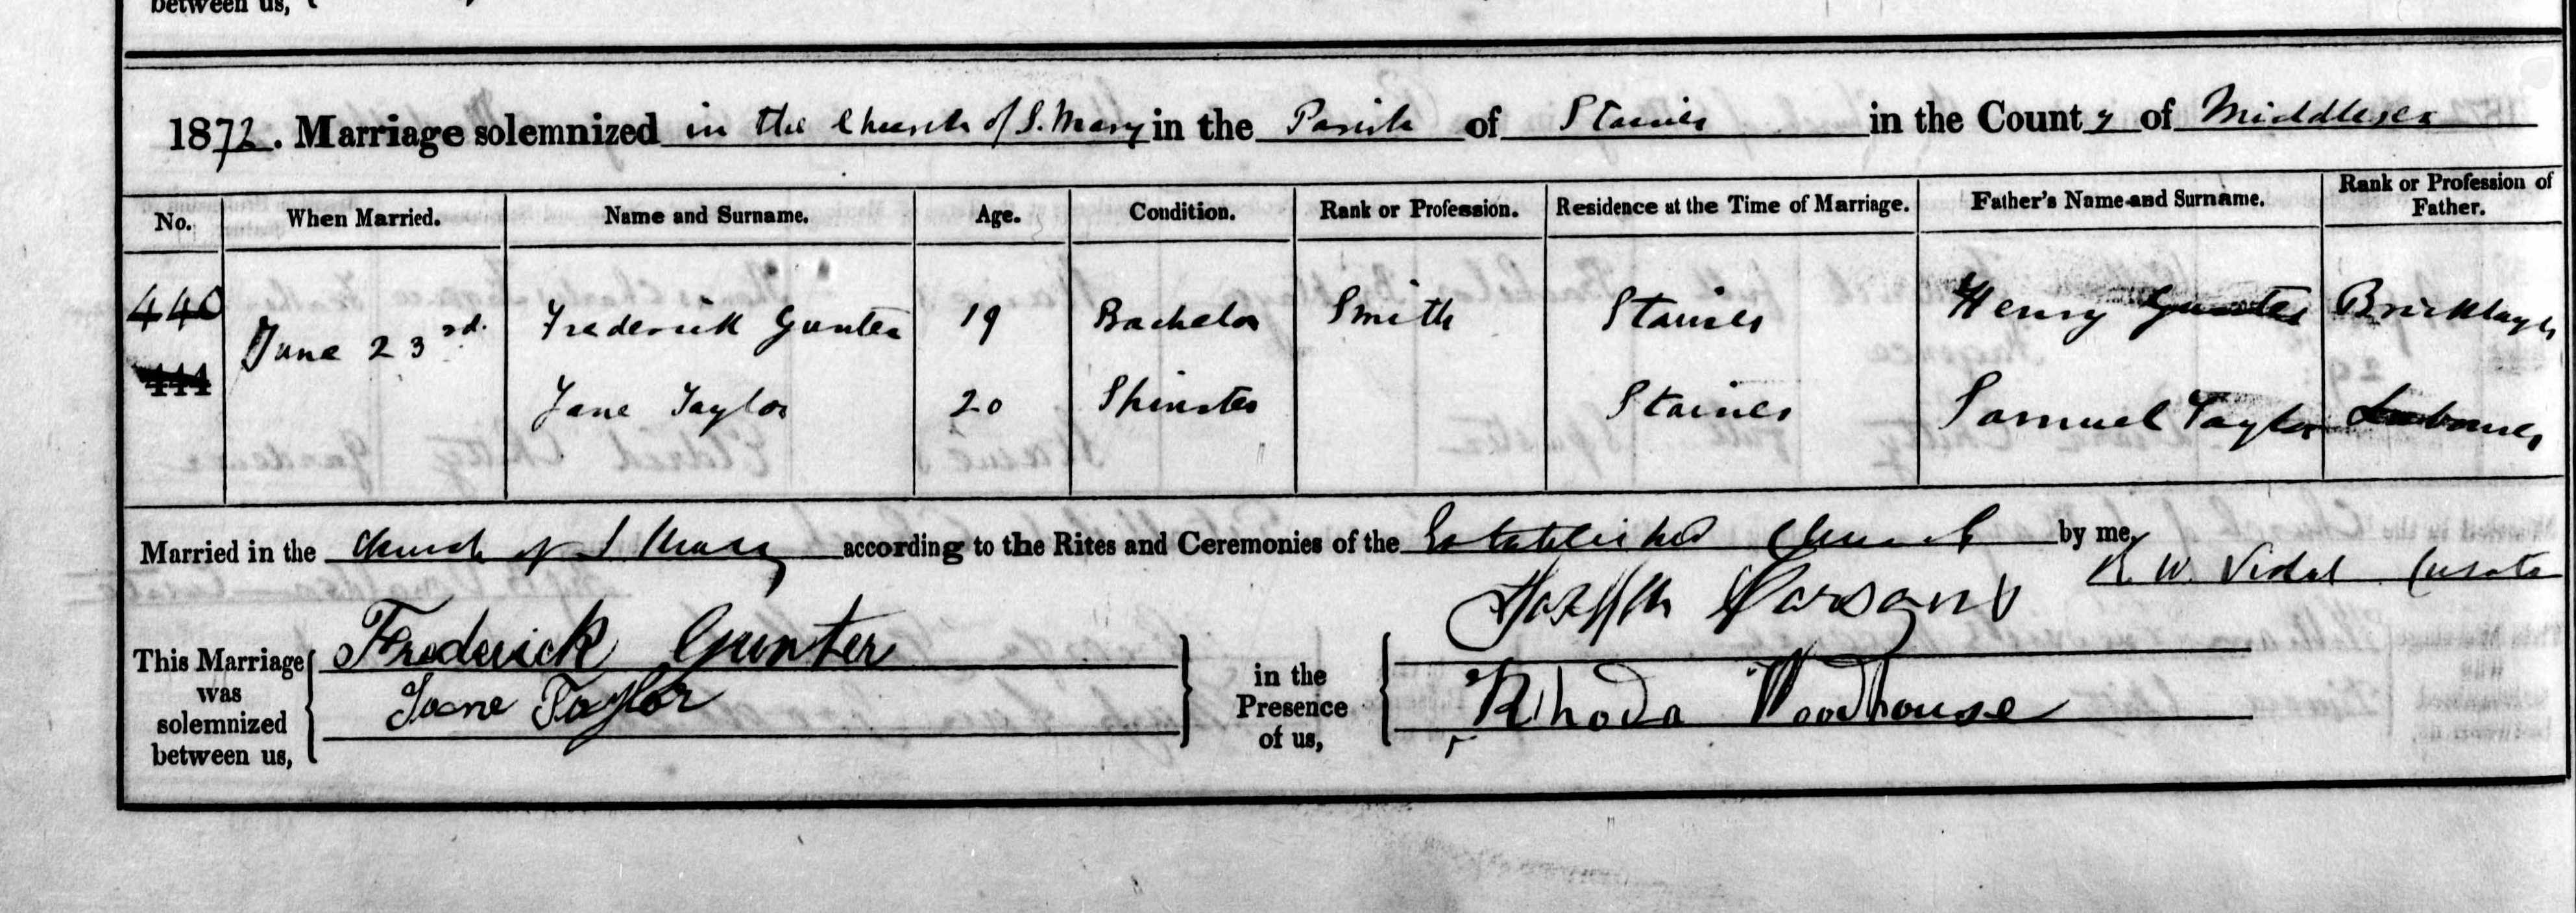 between us,
1872. Marriage solemnized in the Church of S. Mary in the Parish of Staines in the County of Middlesex
No. When Married. Name and Surname. Age. Condition. Rank or Profession. Residence at the Time of Marriage. Father's Name and Surname. Rank or Profession of Father.
440 June 23rd. Frederick Gunter 19 Bachelor Smith Staines Henry Gunter Bricklayer
441 Jane Taylor 20 Spinster Staines Samuel Taylor Labourer
Married in the Church of S Mary according to the Rites and Ceremonies of the Established Church by me,
R. W. Vidal Curate
This Marriage was solemnized between us, Frederick Gunter
Jane Taylor
in the Presence of us, Joseph Parsons
Rhoda Woodhouse